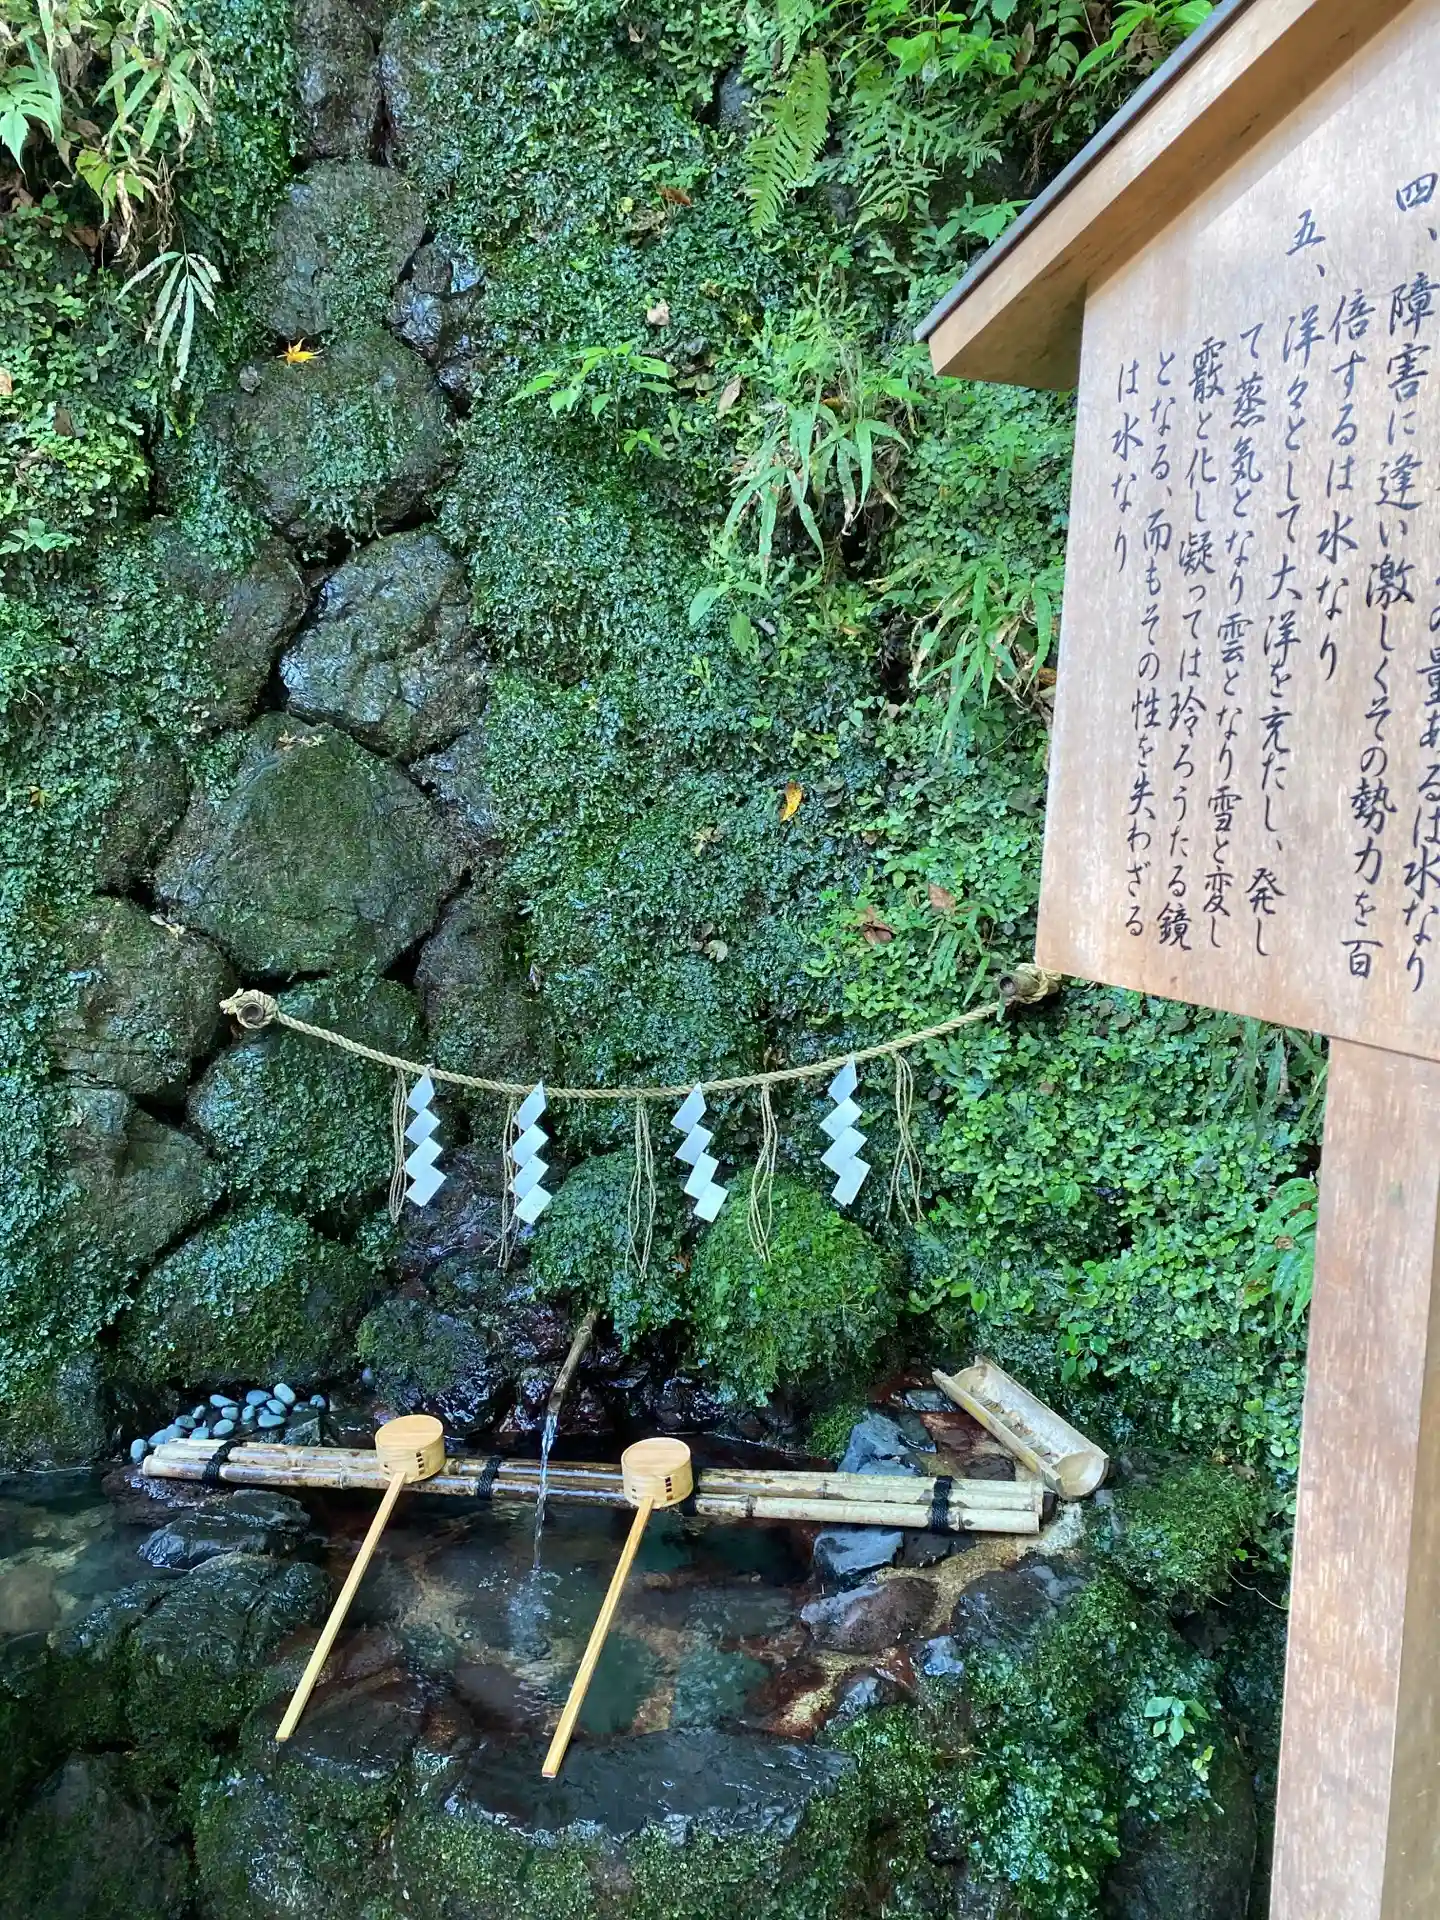 の量あるは水なり
四、障害に逢い激しくその勢力を百
倍するは水なり
五、洋々として大洋を充たし、発し
て蒸気となり雲となり雪と変し
霰と化し凝っては玲ろうたる鏡
となる、而もその性を失わざる
は水なり